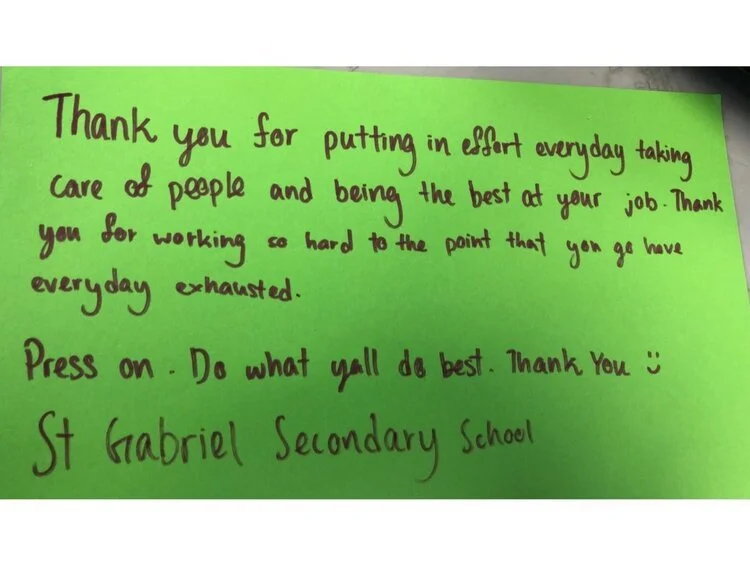 Thank you for putting in effort everyday taking
care of people and being the best at your job. Thank
you for working so hard to the point that you go have
everyday exhausted.
Press on. Do what yall do best. Thank You :)
St Gabriel Secondary School